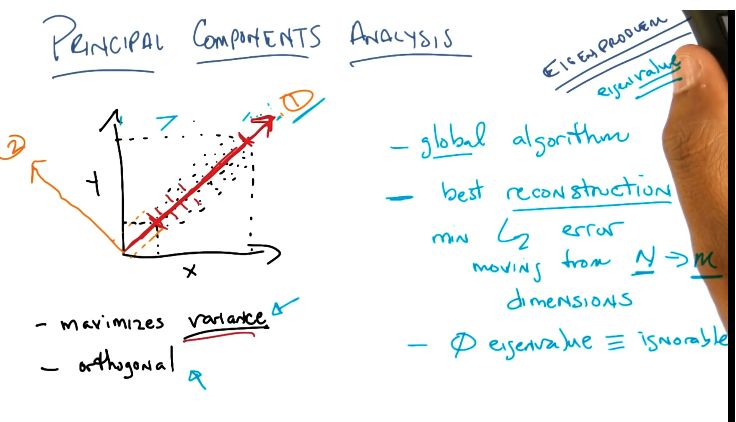 PRINCIPAL COMPONENTS ANALYSIS
EIGENPROBLEM
eigenvalue
1
2
Y
X
- maximizes variance
- orthogonal
- global algorithm
- best reconstruction
min error
moving from N → m
dimensions
- Ø eigenvalue ≡ ignorable